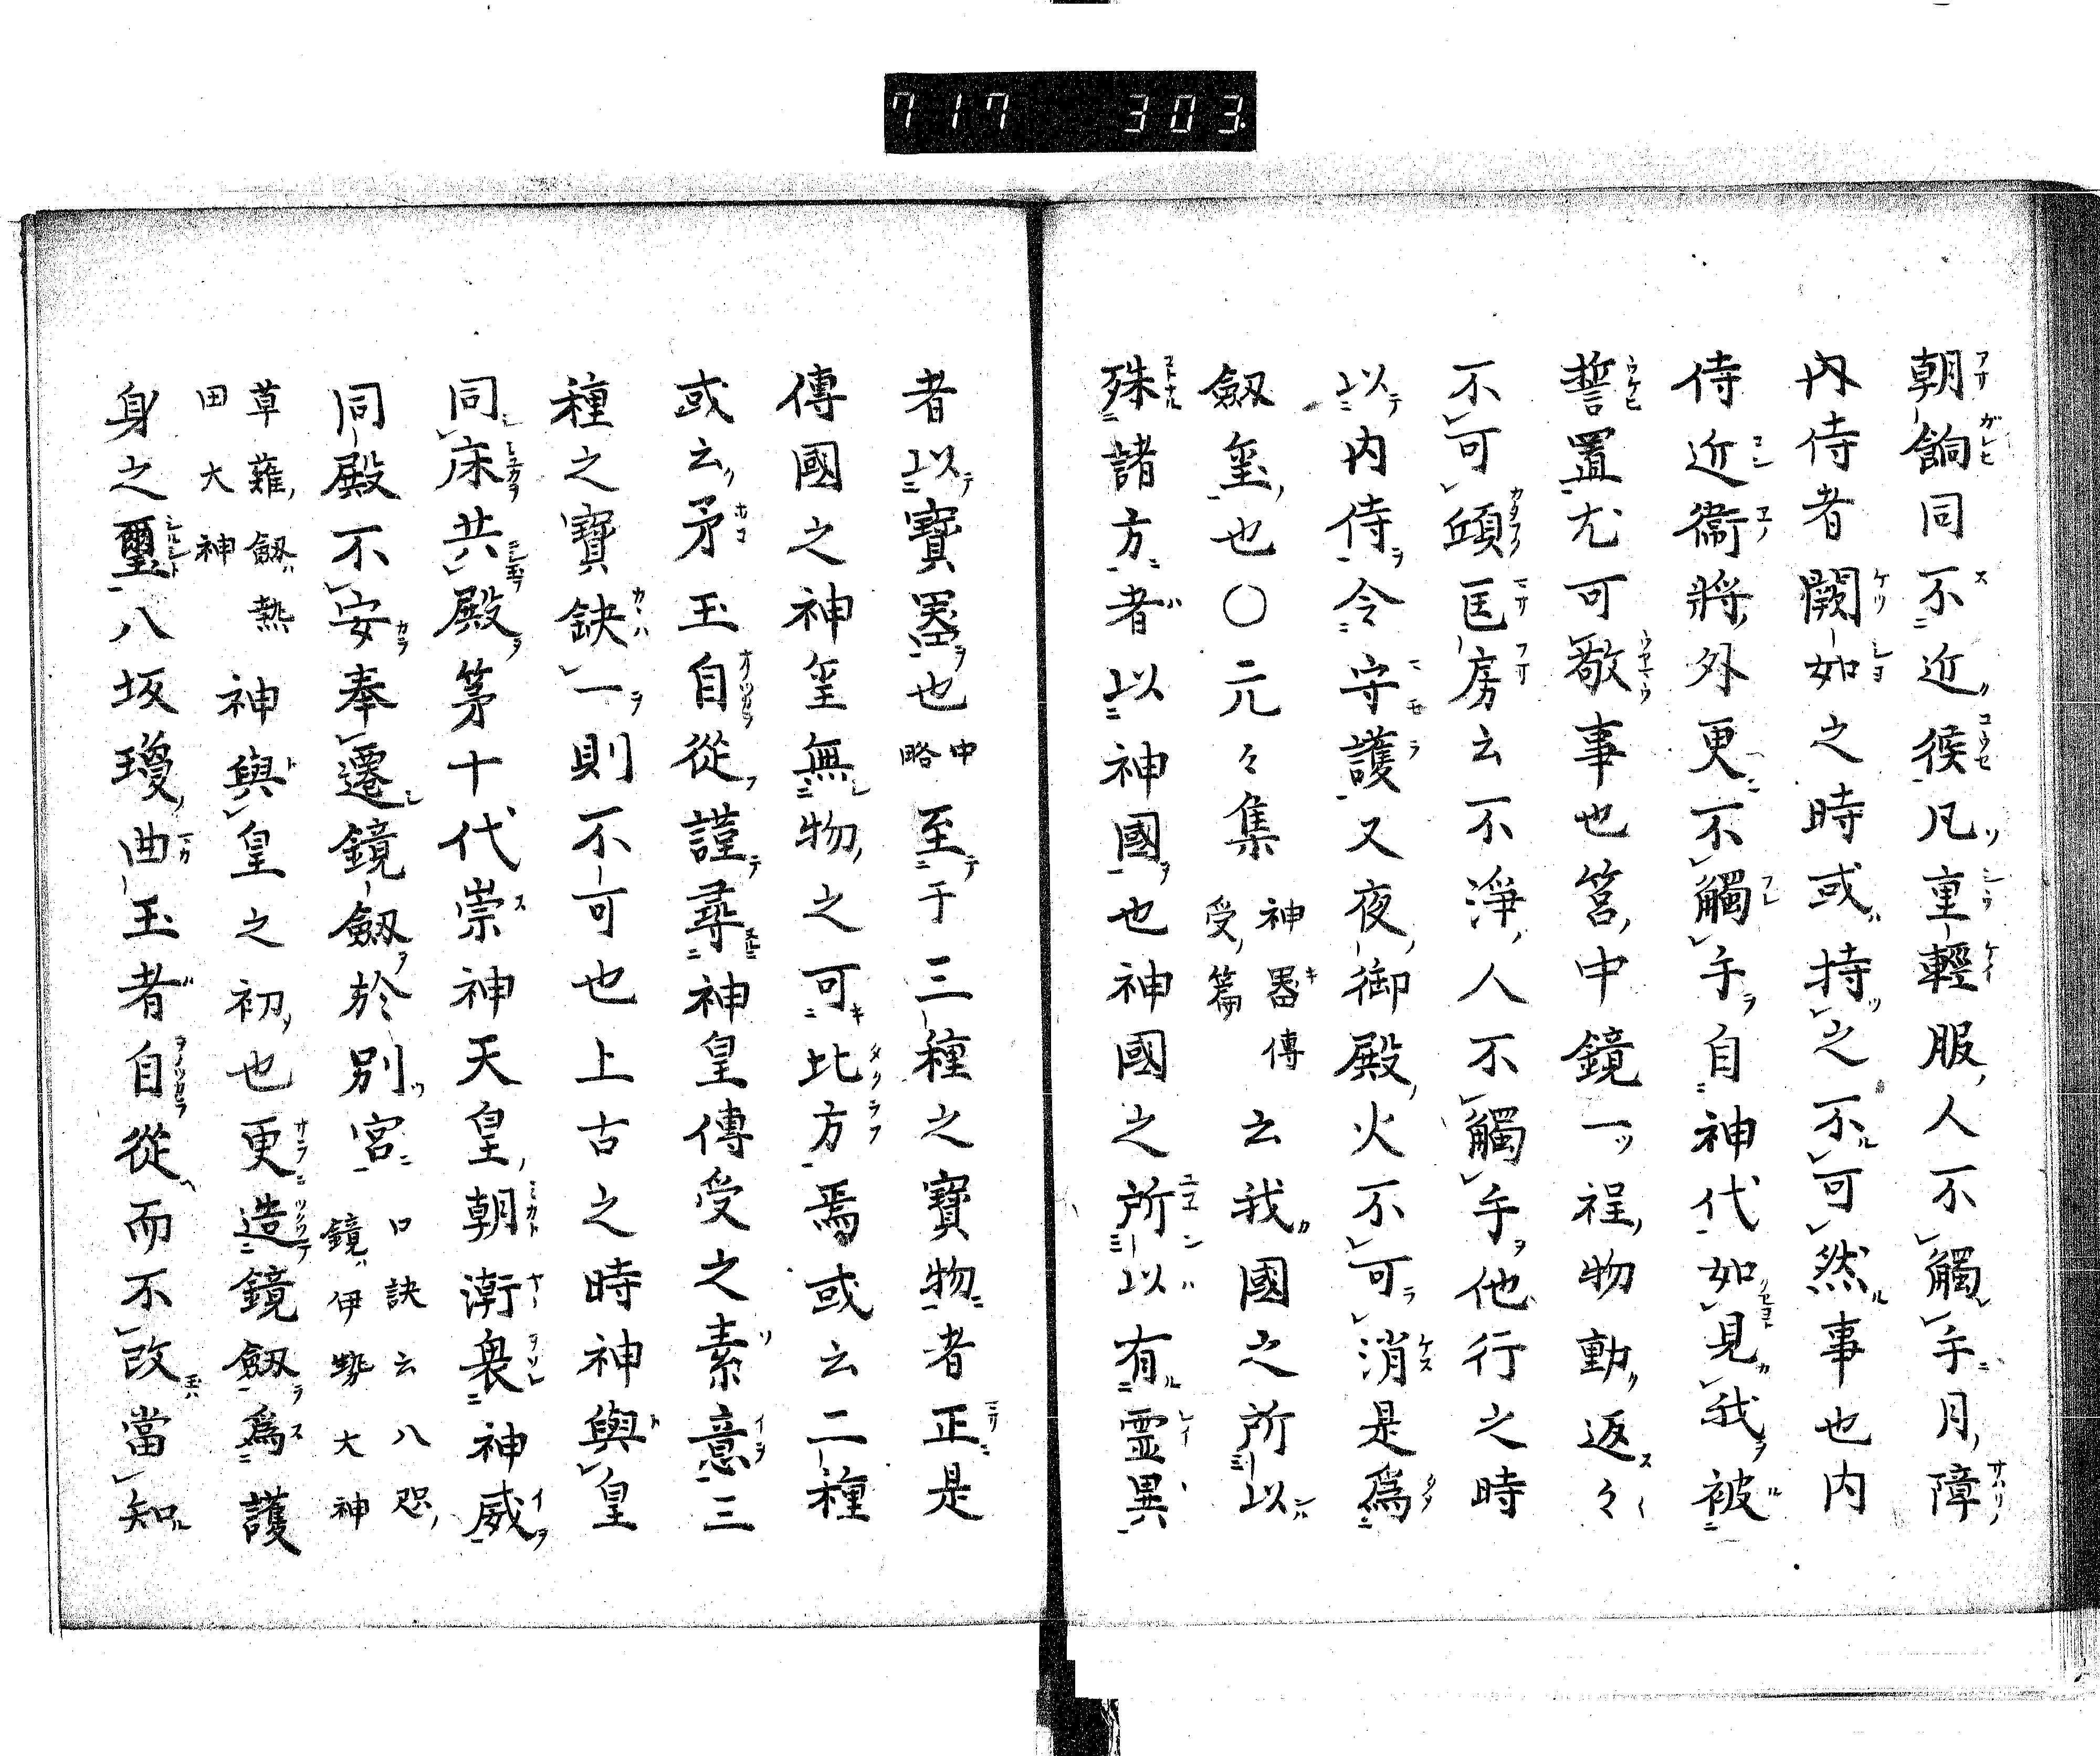 717 303.
朝餉同不近候凡重輕服人不觸手月障
内侍者闕如之時或持之不可然事也内
侍近衞將外更不觸手自神代如見我被
誓置尤可敬事也筥中鏡一程物動返々
不可傾匡房云不淨人不觸手他行之時
以内侍令守護又夜御殿火不可消是爲
劔璽也〇元々集神器傳受篇云我國之所以
殊諸方者以神國也神國之所以有霊異
者以寶器也中略至于三種之寶物者正是
傳國之神璽無物之可比方焉或云二種
或云矛玉自從謹尋神皇傳受之素意三
種之寶缺一則不可也上古之時神與皇
同床共殿第十代崇神天皇朝漸褻神威
同殿不安奉遷鏡劔於別宮口訣云八咫鏡伊勢大神
草薙劔熱田大神神與皇之初也更造鏡劔爲護
身之璽八坂瓊曲玉者自從而不改當知